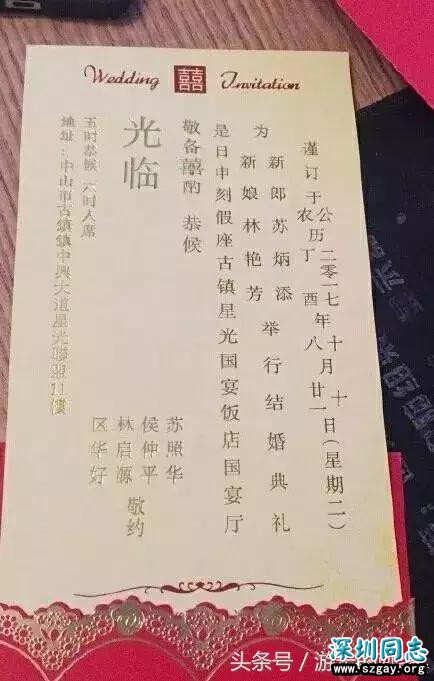 Wedding 囍 Invitation
谨订于
公历二零一七年十月十日(星期二)
农 丁酉 八 廿一
为
新郎苏炳添
新娘林艳芳
举行结婚典礼
是日申刻假座古镇星光国宴饭店国宴厅
敬备囍酌 恭候
光临
苏照华
侯仲平
林启源
区华好
敬约
五时恭候 六时入席
地址:中山市古鎮鎮中興大道星光聯盟11樓
头条号/游
深圳同志
www.szgay.org